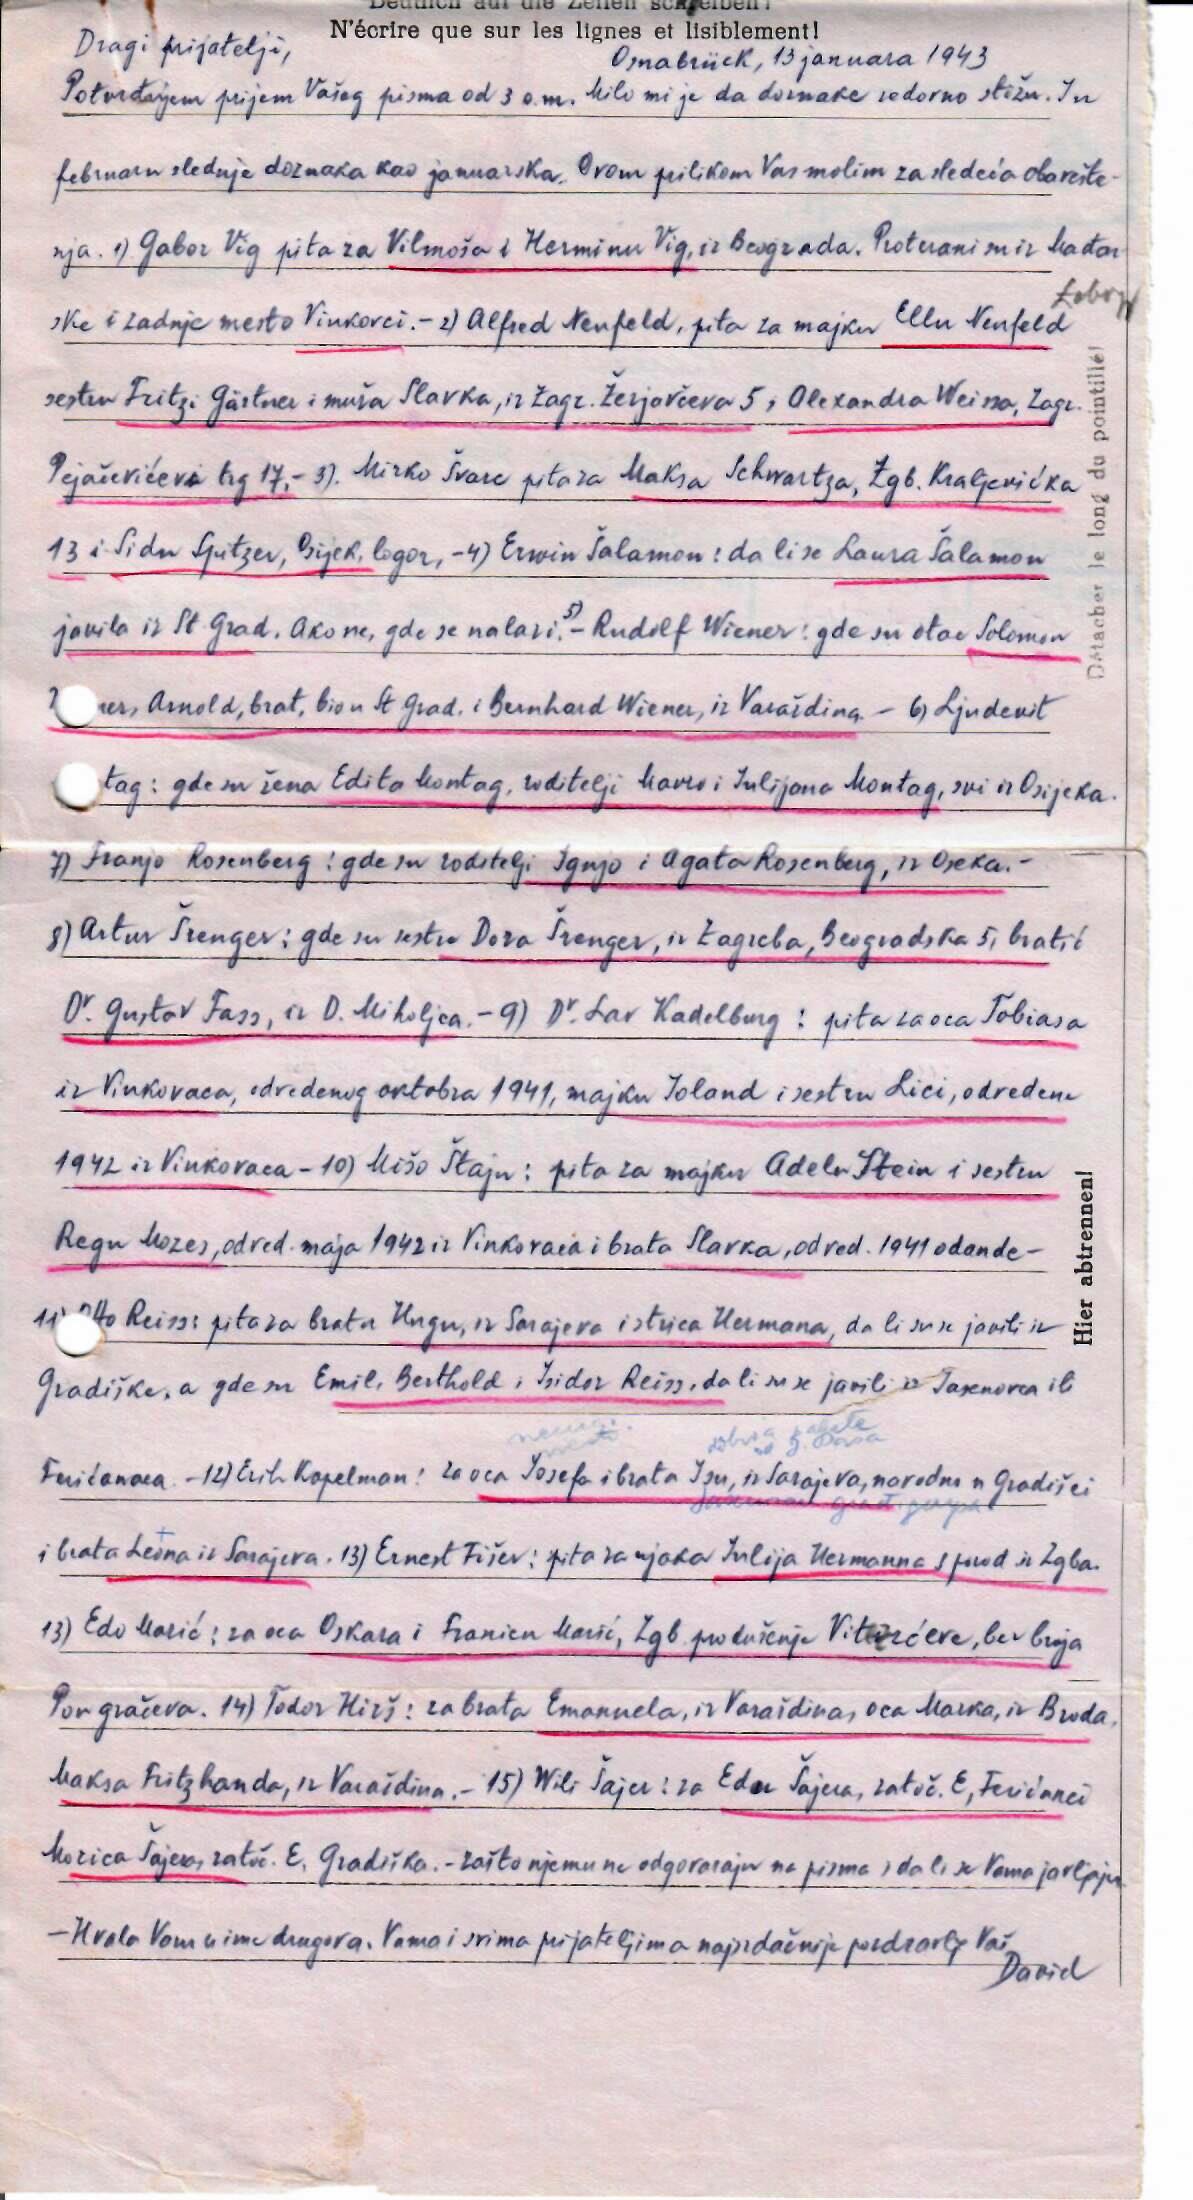 Deutlich auf die Zeilen schreiben!
N'écrire que sur les lignes et lisiblement!
Dragi prijatelji,
Osnabrück, 13 januara 1943
Potvrđujem prijem Vašeg pisma od 3 o.m. Milo mi je da doznake redovno stižu. Za
februaru sleduje doznaka kao januarska. Ovom prilikom Vas molim za sledeća obavešte-
nja. 1) Gabor Vig pita za Vilmoša i Herminu Vig, iz Beograda. Proterani su iz Mađar
ske i zadnje mesto Vinkovci. - 2) Alfred Neufeld, pita za majku Ellu Neufeld
sestru Fritzi Gärtner i muža Slavka, iz Zagr. Žerjavčeva 5, Olexandra Weissa, Zagr.
Pejačevićeva trg 17. - 3). Mirko Švarc pita za Maksa Schwartza, Zgb. Kraljevićka
13 i Sidu Spitzer, Osijek, logor, - 4) Erwin Šalamon: da li se Laura Šalamon
javila iz St Grad. Ako ne, gde se nalazi. 5) - Rudolf Wiener: gde su otac Solomon
ner, Arnold, brat, bio u St Grad. i Bernhard Wiener, iz Varaždina. - 6) Ljudevit
tag: gde su žena Edita Montag, roditelji Mavro i Julijana Montag, svi iz Osijeka.
7) Franjo Rosenberg: gde su roditelji Ignjo i Agata Rosenberg, iz Oseka. -
8) Artur Šrenger: gde su sestra Dora Šrenger, iz Zagreba, Beogradska 5, bratić
Dr. Gustav Fass, iz D. Miholjca. - 9) Dr. Lav Kadelburg: pita za oca Tobiasa
iz Vinkovaca, odvedenog oktobra 1941, majku Joland i sestru Lici, odvedene
1942 iz Vinkovaca - 10) Mišo Štajn: pita za majku Adelu Stein i sestru
Regu Mozes, odved. maja 1942 iz Vinkovaca i brata Slavka, odved. 1941 odande -
11) Otto Reiss: pita za brata Hugu, iz Sarajeva i strica Hermana, da li su se javili iz
Gradiške, a gde su Emil, Berthold i Isidor Reiss, da li su se javili iz Jasenovca ili
Feričanaca. - 12) Erih Kopelman: za oca Josefa i brata Isu, iz Sarajeva, navodno u Gradišci
i brata Leona iz Sarajeva. 13) Ernest Fišer: pita za ujaka Julija Hermanna i porod iz Zgba.
13) Edo Marić: za oca Oskara i Franicu Marić, Zgb produženje Vitezićeve, bez broja
Pongračeva. 14) Todor Hirš: za brata Emanuela, iz Varaždina, oca Marka, iz Broda,
Maksa Fritzhanda, iz Varaždina. - 15) Wili Šajer: za Edu Šajera, zatoč. E, Feričanci
Morica Šajera, zatoč. E, Gradiška. - Zašto njemu ne odgovaraju na pisma i da li se Vama javljaju
- Hvala Vam u ime drugova. Vama i svima prijateljima najsrdačnije pozdravlja Vaš
David
Détacher le long du pointillé!
Hier abtrennen!